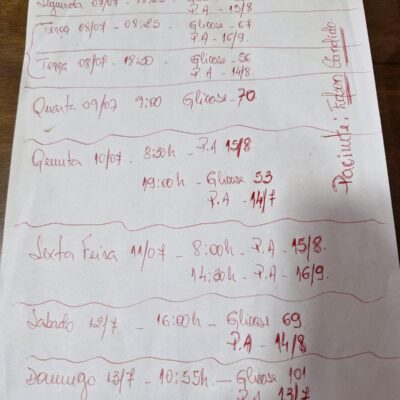 Segunda 07/07 -
P.A - 15/8
Terça 08/07 - 08:25 - Glicose - 67
P.A - 16/9.
Terça 08/07 - 18:20 - Glicose - 56
P.A - 14/8
Quarta 09/07 9:00 Glicose - 70
Quinta 10/07 - 8:30h - P.A 15/8
19:00h - Glicose 53
P.A - 14/7
Sexta Feira 11/07 - 8:00h - P.A - 15/8.
14:30h - P.A - 16/9.
Sabado 12/7 - 16:00h - Glicose 69
P.A - 14/8
Domingo 13/7 - 10:55h - Glicose 101
P.A - 13/7
Paciente: